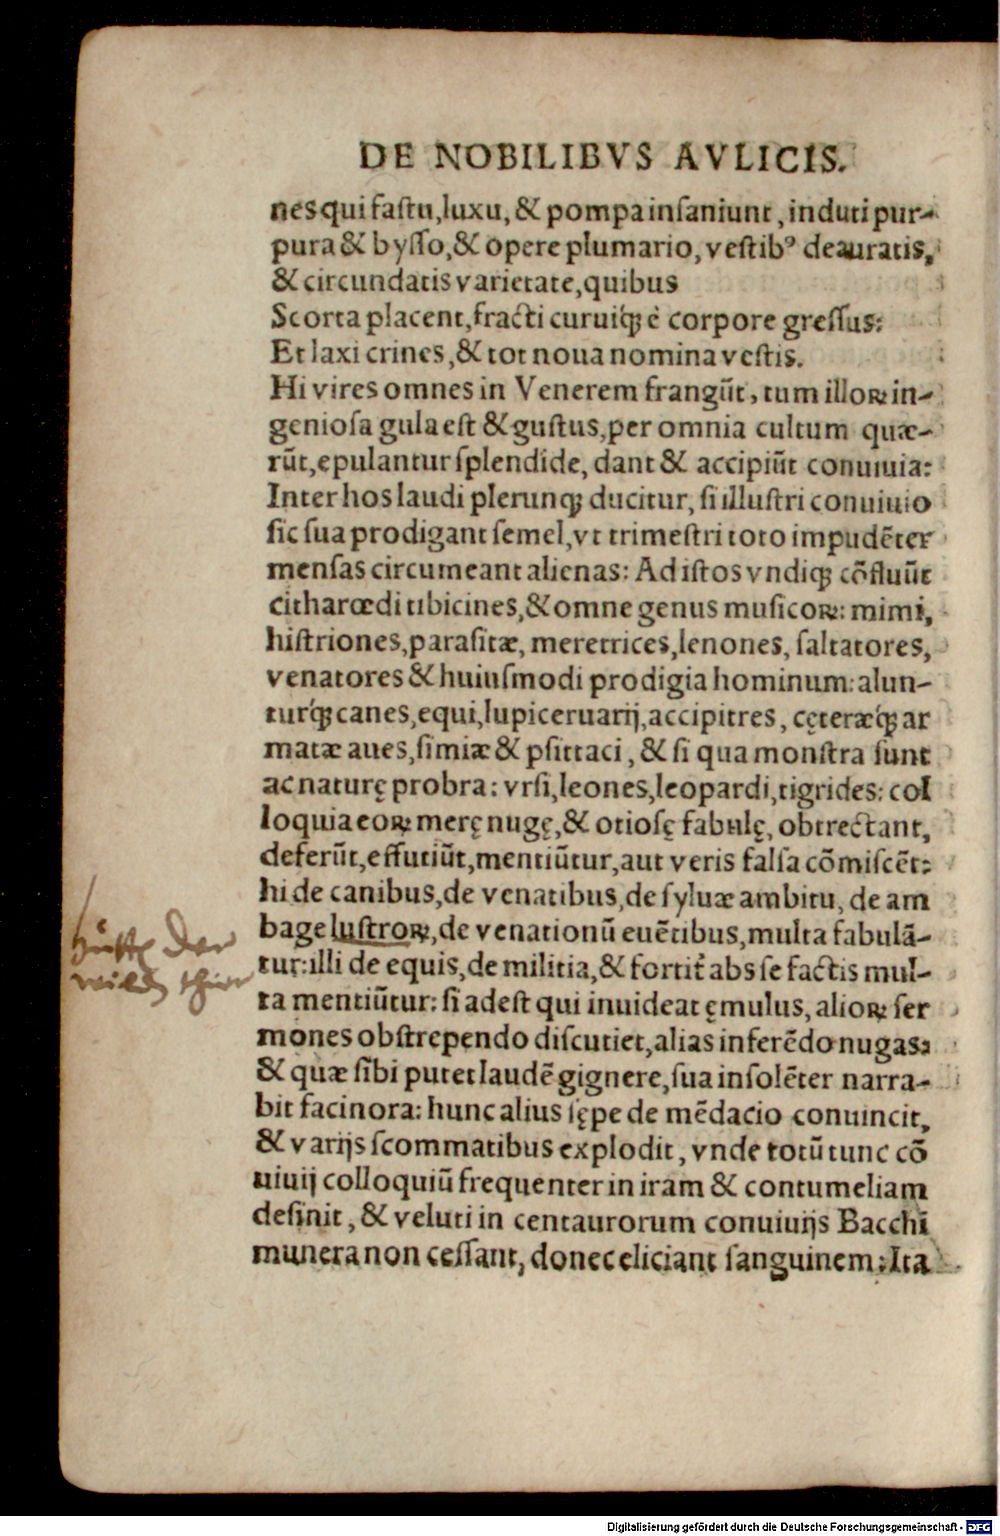 DE NOBILIBVS AVLICIS.
nes qui faſtu, luxu, & pompa inſaniunt, induti pur-
pura & byſſo, & opere plumario, veſtibꝰ deauratis,
& circundatis varietate, quibus
Scorta placent, fracti curuiq́ꝫ è corpore greſſus:
Et laxi crines, & tot noua nomina veſtis.
Hi vires omnes in Venerem frangūt, tum illoꝝ in-
genioſa gula eſt & guſtus, per omnia cultum quæ-
rūt, epulantur ſplendide, dant & accipiūt conuiuia:
Inter hos laudi plerunqꝫ ducitur, ſi illuſtri conuiuio
ſic ſua prodigant ſemel, vt trimeſtri toto impudēter
menſas circumeant alienas: Ad iſtos vndiqꝫ cōfluūt
citharœdi tibicines, & omne genus muſicoꝝ: mimi,
hiſtriones, paraſitæ, meretrices, lenones, ſaltatores,
venatores & huiuſmodi prodigia hominum: alun-
turq́ꝫ canes, equi, lupi ceruarij, accipitres, cęteræq́ꝫ ar
matæ aues, ſimiæ & pſittaci, & ſi qua monſtra ſunt
ac naturę probra: vrſi, leones, leopardi, tigrides: col
loquia eoꝝ merę nugę, & otioſę fabulę, obtrectant,
deferūt, effutiūt, mentiūtur, aut veris falſa cōmiſcēt:
hi de canibus, de venatibus, de ſyluæ ambitu, de am
bage luſtroꝝ, de venationū euētibus, multa fabulā-
tur: illi de equis, de militia, & fortiť abs ſe factis mul-
ta mentiūtur: ſi adeſt qui inuideat ęmulus, alioꝝ ſer
mones obſtrependo diſcutiet, alias inferēdo nugas:
& quæ ſibi putet laudē gignere, ſua inſolēter narra-
bit facinora: hunc alius ſępe de mēdacio conuincit,
& varijs ſcommatibus explodit, vnde totū tunc cō
uiuij colloquiū frequenter in iram & contumeliam
deſinit, & veluti in centaurorum conuiuijs Bacchi
munera non ceſſant, donec eliciant ſanguinem: Ita
der
wilden thier
Digitalisierung gefördert durch die Deutsche Forschungsgemeinschaft - DFG